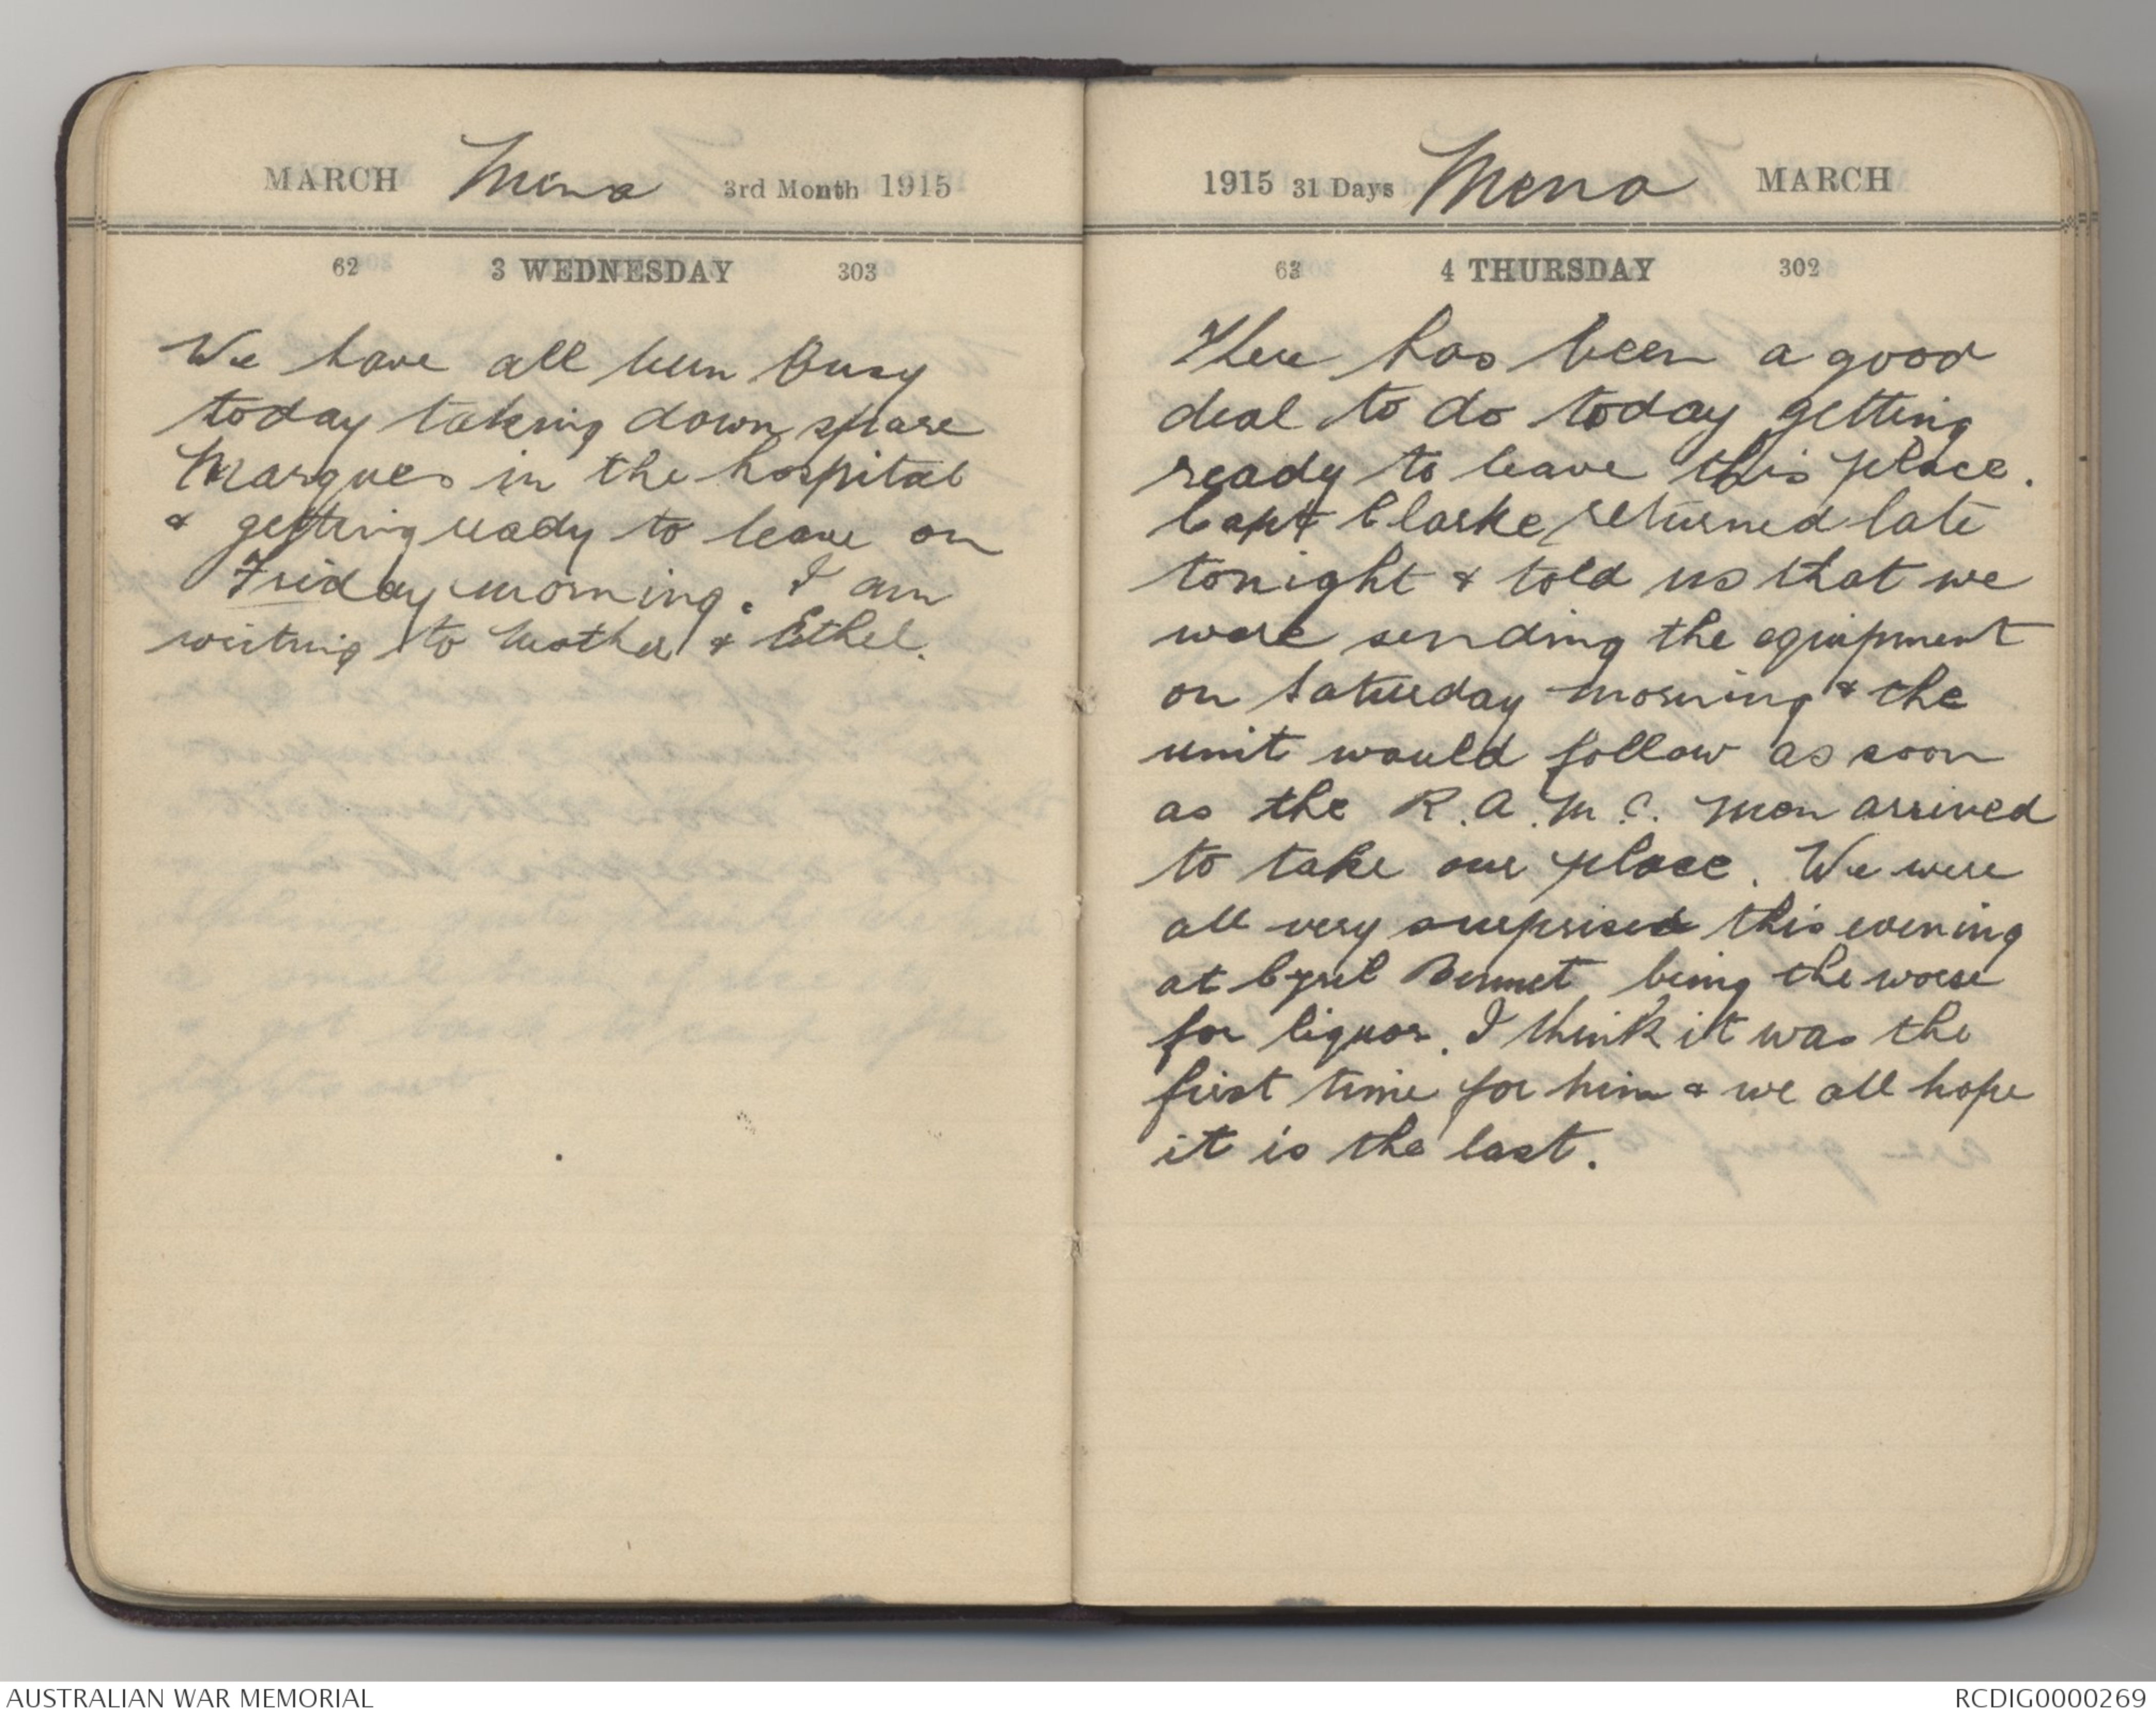 MARCH Mena 3rd Month 1915
62 3 WEDNESDAY 303
We have all been Busy
today taking down spare
Marques in the hospital
& getting ready to leave on
Friday morning. I am
writing to Mother & Ethel.
1915 31 Days Mena MARCH
63 4 THURSDAY 302
There has been a good
deal to do today getting
ready to leave this place.
Capt Clarke returned late
tonight & told us that we
were sending the equipment
on Saturday morning & the
unit would follow as soon
as the R.A.M.C. men arrived
to take our place. We were
all very surprised this evening
at Cyril Bennet being the worse
for liquor. I think it was the
first time for him & we all hope
it is the last.
AUSTRALIAN WAR MEMORIAL
RCDIG0000269